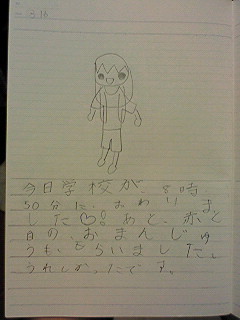 16
今日学校が、8時
50分に、おわりま
した♡!あと、赤と
白の、おまんじゅ
うも、もらいました。
うれしかったです。